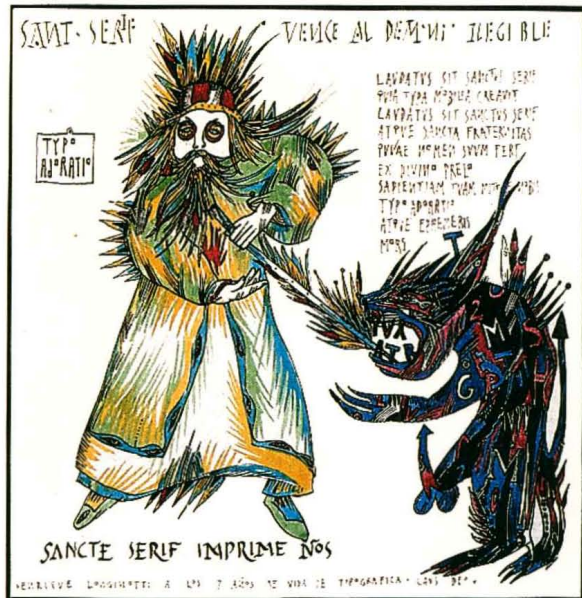 SANT · SERIF VENCE AL DEMONI ILEGIBLE
LAVDATVS SIT SANCTVS SERIF
QVIA TYPA MOBILIA CREAVIT
LAVDATVS SIT SANCTVS SERIF
ATQVE SANCTA FRATERNITAS
NOMEN SVVM FERT
EX DIVINO PRELO
SAPIENTIAM TVAM
TYPO ADORATIO
ATQVE EPHEMERVS
MORS
TYPO
ADORATIO
SANCTE SERIF IMPRIME NOS
A LOS 7 AÑOS DE VIDA DE TIPOGRAFICA · LAUS DEO ·